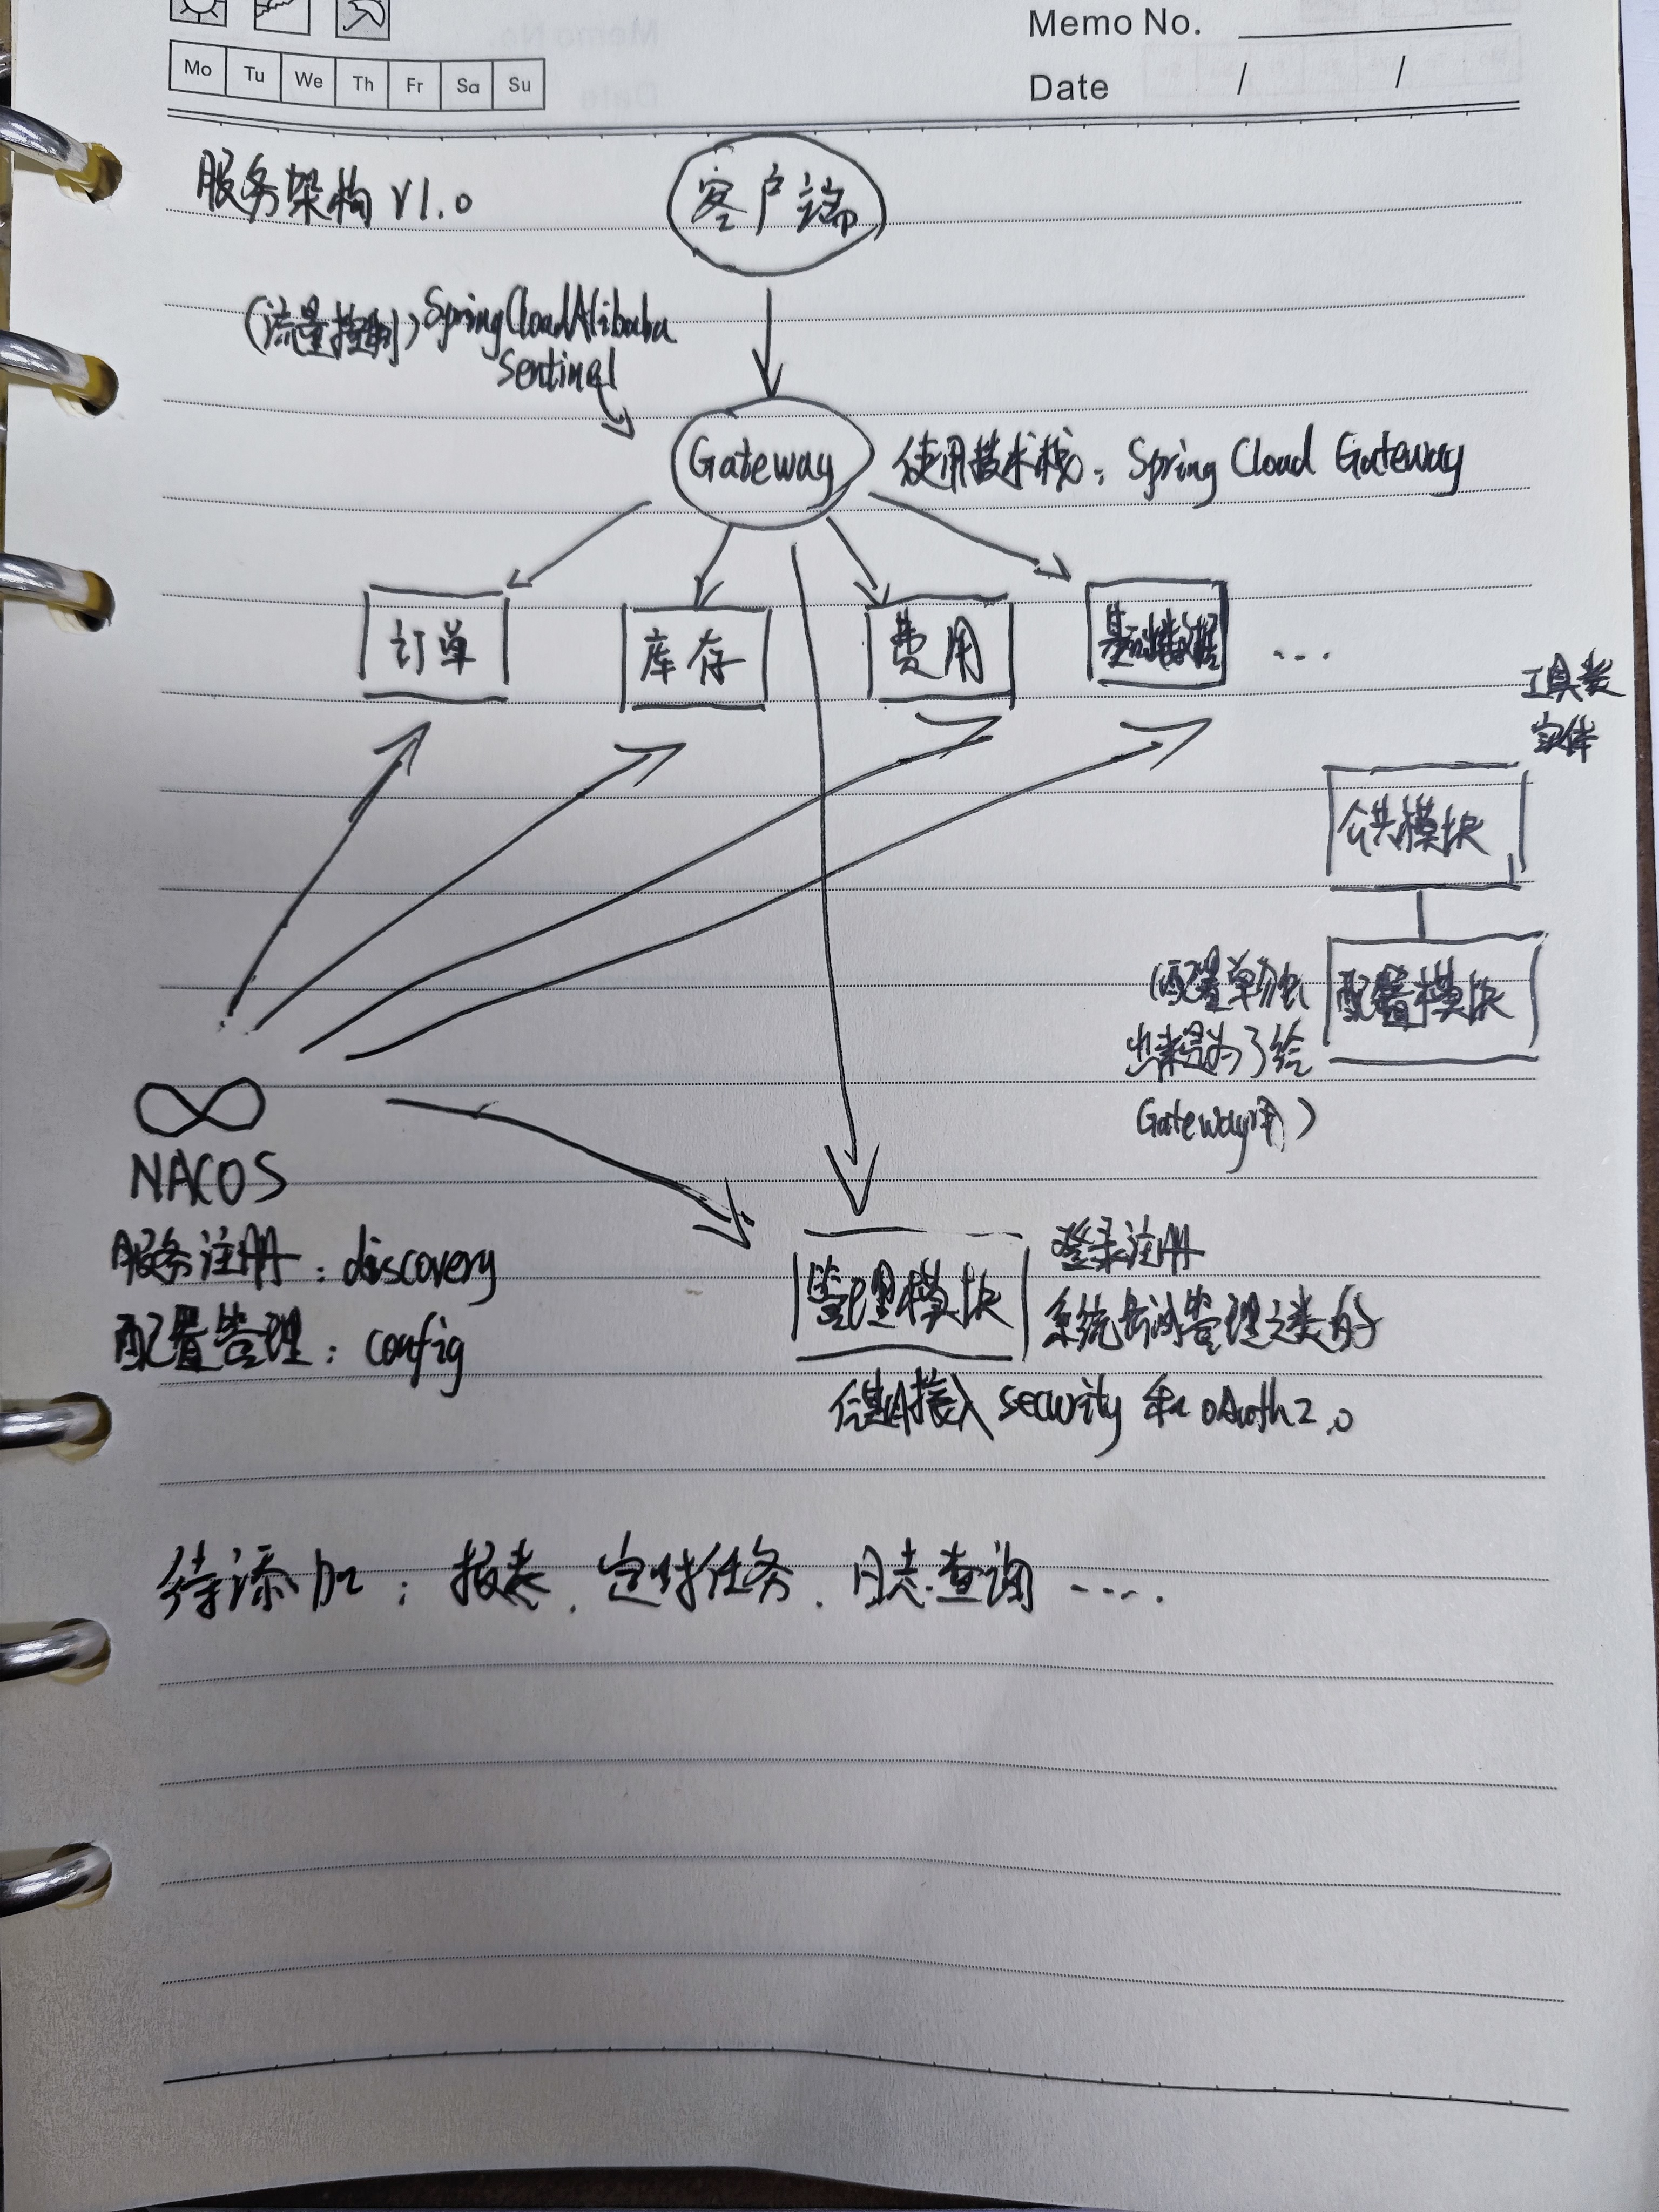 Memo No.
Mo Tu We Th Fr Sa Su
Date / /
服务架构 V1.0
客户端
(流量控制) SpringCloudAlibaba
Sentinel
Gateway
使用技术栈: Spring Cloud Gateway
订单
库存
费用
基础数据
...
工具类
实体
公共模块
配置模块
(配置单独
出来是为了给
Gateway用)
NACOS
服务注册: discovery
配置管理: config
管理模块
登录注册
系统 管理之类的
接入 security 和 oAuth2.0
待添加: 报表. 定时任务. 日志查询 ....